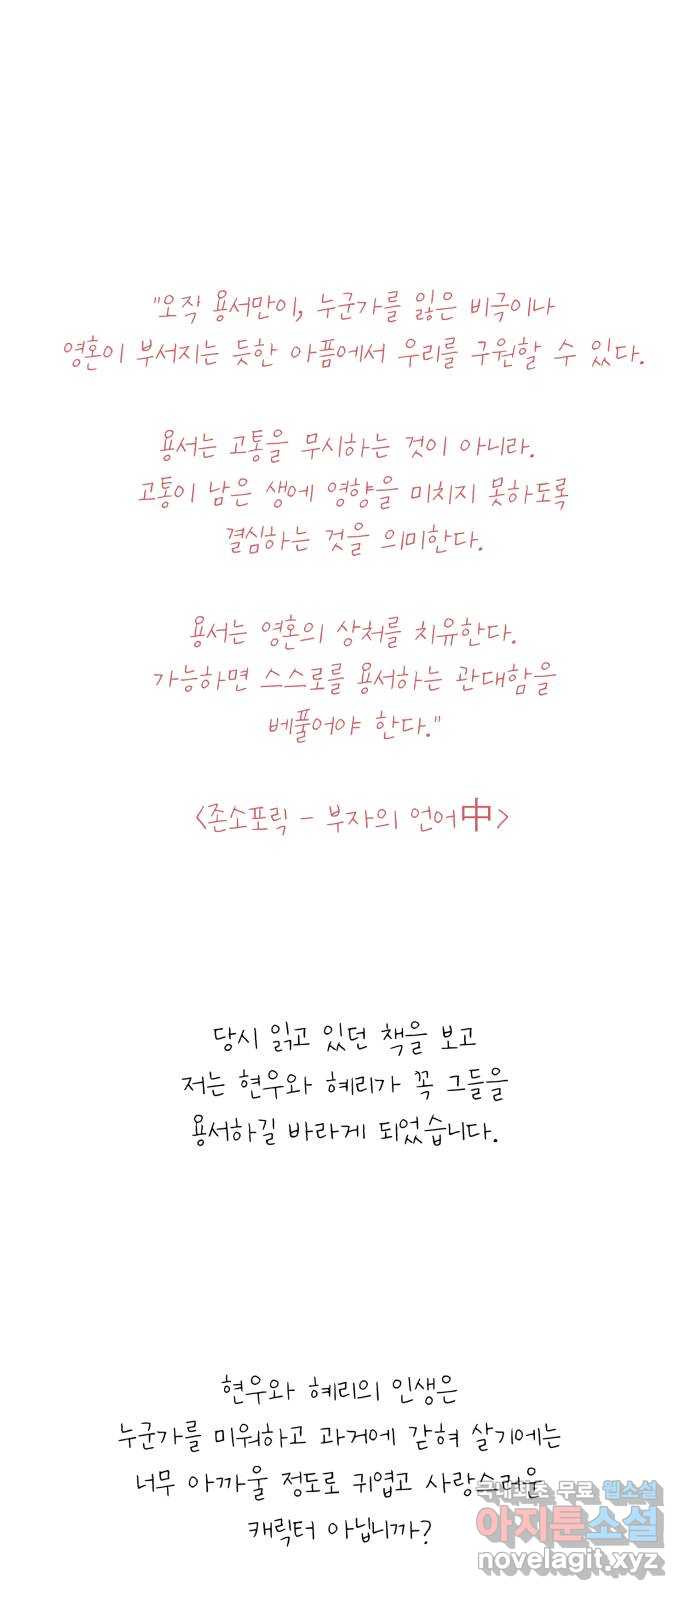 "오직 용서만이, 누군가를 잃은 비극이나
영혼이 부서지는 듯한 아픔에서 우리를 구원할 수 있다.
용서는 고통을 무시하는 것이 아니라.
고통이 남은 생에 영향을 미치지 못하도록
결심하는 것을 의미한다.
용서는 영혼의 상처를 치유한다.
가능하면 스스로를 용서하는 관대함을
베풀어야 한다."
<존소포릭 - 부자의 언어中>
당시 읽고 있던 책을 보고
저는 현우와 혜리가 꼭 그들을
용서하길 바라게 되었습니다.
현우와 혜리의 인생은
누군가를 미워하고 과거에 갇혀 살기에는
너무 아까울 정도로 귀엽고 사랑스러운
캐릭터 아닙니까?
국내최초 무료 웹소설
아지툰소설
novelagit.xyz